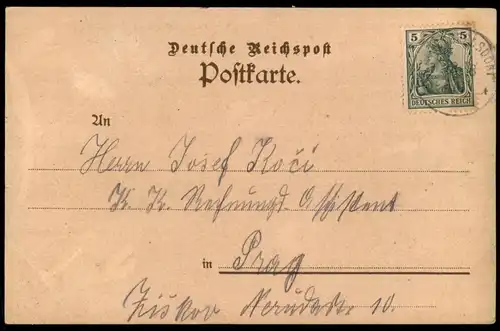 Deutsche Reichspost
Postkarte.
5 5
DEUTSCHES REICH
SDORF
An
Herrn Josef Kočí
K. K. Rechnungs-Assistent
in Prag
Žižkov Nerudova 10.